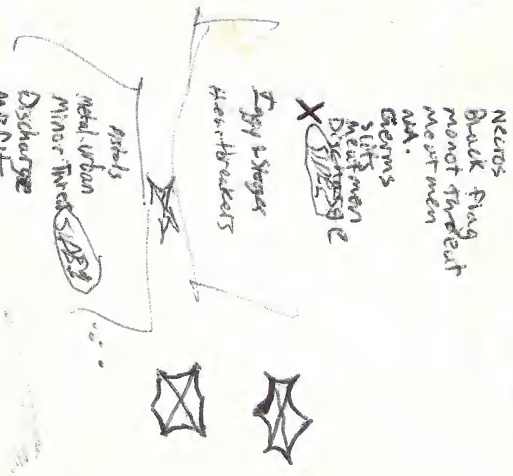 Necros
Black Flag
monot threat
Meatmen
NA.
Germs
Slits
Meatmen
Discharge
X SIDE2
Iggy & Stooges
Heartbreakers
Metal urban
Minor Threat SIDE1
Discharge